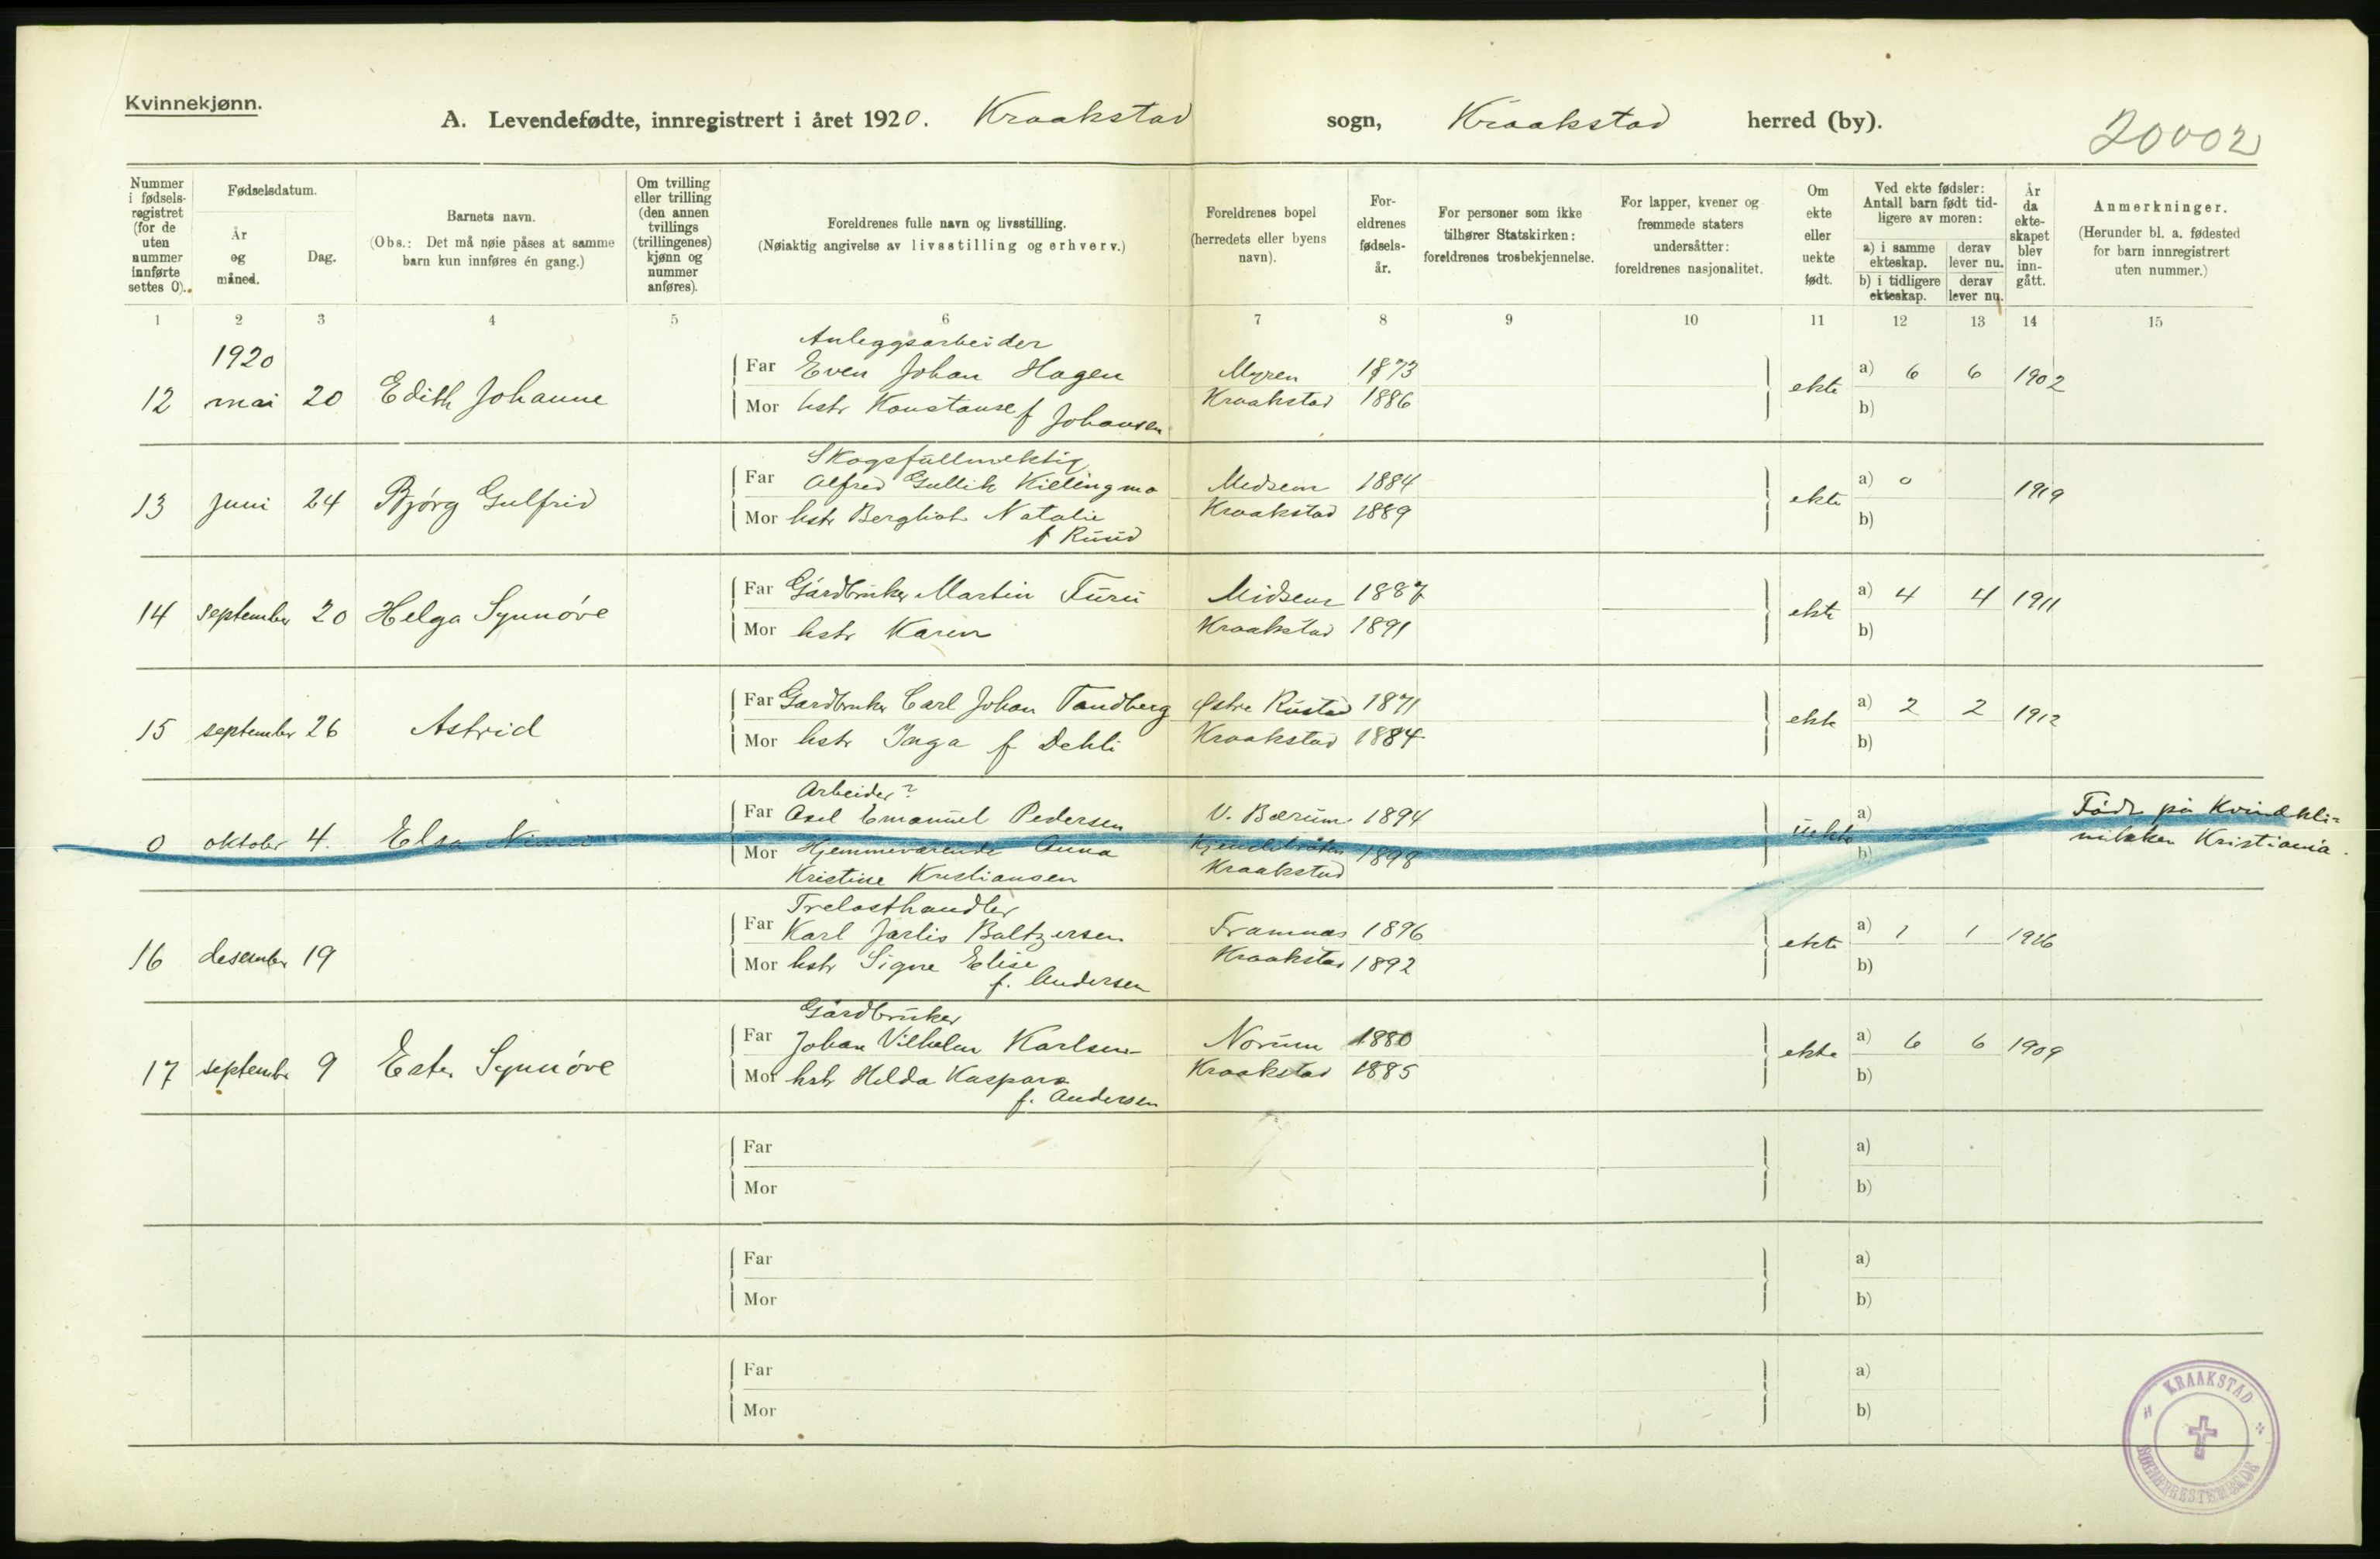 Kvinnekjønn.
A. Levendefødte, innregistrert i året 1920. Kraakstad sogn, Kraakstad herred (by).
20002
Nummer i fødsels-registret (for de uten nummer innførte settes 0).
Fødselsdatum.
År og måned.
Dag.
Barnets navn.
(Obs.: Det må nøie påses at samme barn kun innføres én gang.)
Om tvilling eller trilling (den annen tvillings (trillingenes) kjønn og nummer anføres).
Foreldrenes fulle navn og livsstilling.
(Nøiaktig angivelse av livsstilling og erhverv.)
Foreldrenes bopel (herredets eller byens navn).
For-eldrenes fødsels-år.
For personer som ikke tilhører Statskirken: foreldrenes trosbekjennelse.
For lapper, kvener og fremmede staters undersåtter: foreldrenes nasjonalitet.
Om ekte eller uekte født.
Ved ekte fødsler: Antall barn født tid-ligere av moren:
a) i samme ekteskap.
derav lever nu.
b) i tidligere ekteskap.
derav lever nu.
År da ekte-skapet blev inn-gått.
Anmerkninger.
(Herunder bl. a. fødested for barn innregistrert uten nummer.)
1 2 3 4 5 6 7 8 9 10 11 12 13 14 15
1920
Anleggsarbeider
Far Even Johan Hagen Myren 1873 a) 6 6 1902
12 mai 20 Edith Johanne ekte
Mor hstr Konstanse f Johansen Kraakstad 1886 b)
Skogsfullmektig
Far Alfred Gullik Kiellingmo Medsem 1884 a) 0 1919
13 juni 24 Bjørg Gulfrid ekte
Mor hstr Bergliot Natalie Kraakstad 1889 b)
f Ruud
Far Gårdbruker Martin Furu Midsem 1887 a) 4 4 1911
14 september 20 Helga Synnøve ekte
Mor hstr Karen Kraakstad 1891 b)
Far Gardbruker Carl Johan Tandberg Østre Rustad 1871 a) 2 2 1912
15 september 26 Astrid ekte
Mor hstr Inga f Dehli Kraakstad 1884 b)
Arbeider?
Far Axel Emanuel Pedersen V. Bærum 1894 a) Født på Kvindekli=
0 oktober 4. Elsa uekte nikken Kristiania.
Mor Hjemmeværende Anna 1898 b)
Kristine Kristiansen Kraakstad
Trelasthandler
Far Karl Jarlis Baltzersen Framnas 1896 a) 1 1 1916
16 desember 19 ekte
Mor hstr Signe Elise Kraakstad 1892 b)
f. Andersen
Gårdbruker
Far Johan Vilhelm Karlsen Norum 1880 a) 6 6 1909
17 september 9 Ester Synnøve ekte
Mor hstr Helda Kaspara Kraakstad 1885 b)
f. Andersen
Far a)
Mor b)
Far a)
Mor b)
Far a)
Mor b)
KRAAKSTAD
SOGNEPRESTEMBEDE